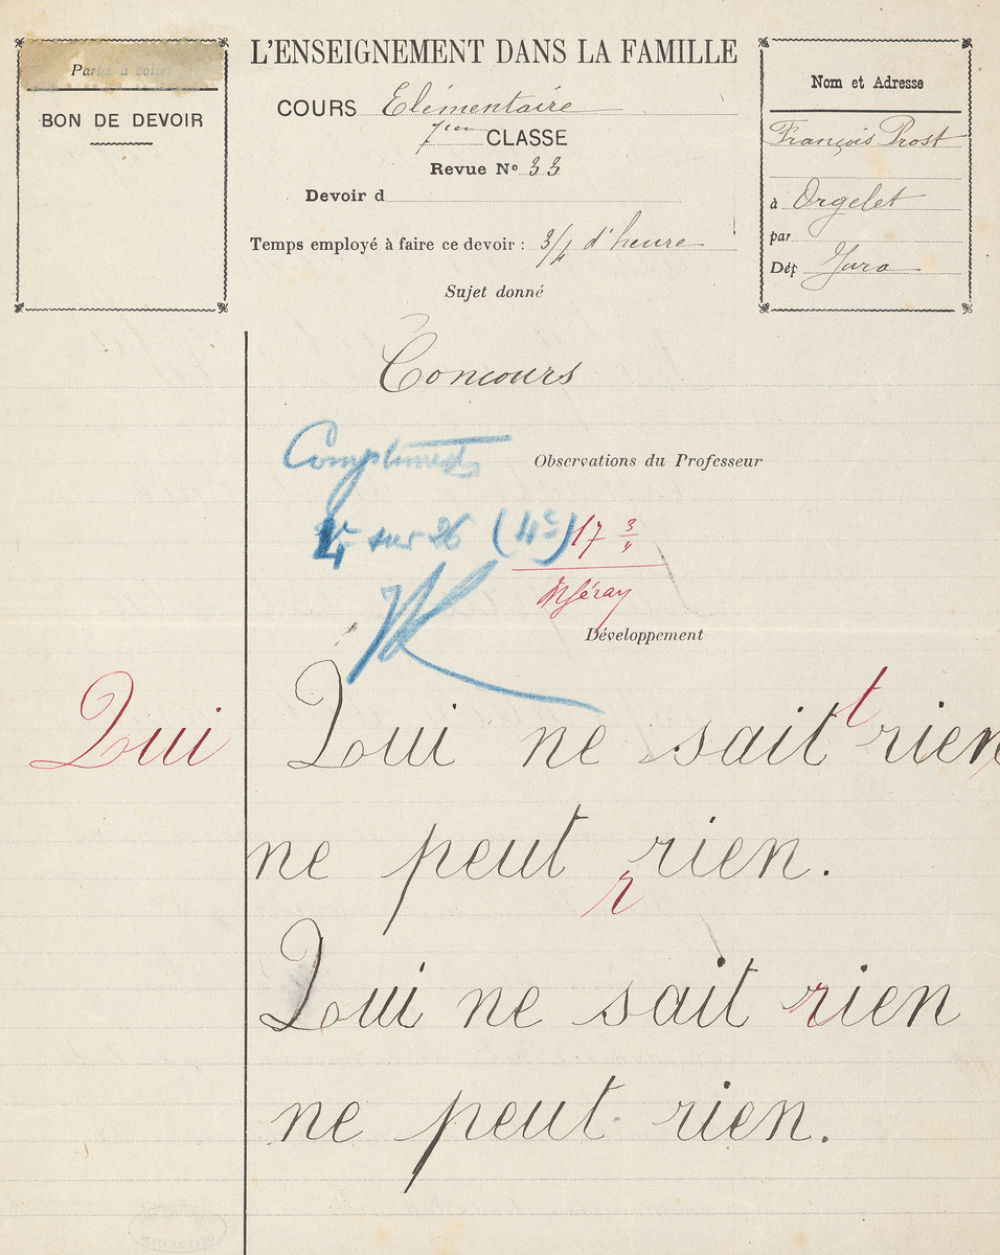 Partie à coller
BON DE DEVOIR
L'ENSEIGNEMENT DANS LA FAMILLE
COURS Elémentaire
7ième CLASSE
Revue Nº 33
Devoir d
Temps employé à faire ce devoir : 3/4 d'heure
Sujet donné
Nom et Adresse
François Prost
à Orgelet
par
Dép Jura
Concours
Compliments
Observations du Professeur
sur 26 (4e) 17 3/4
Développement
Qui Qui ne sait t rien
ne peut rien.
r
Qui ne sait rien
ne peut rien.